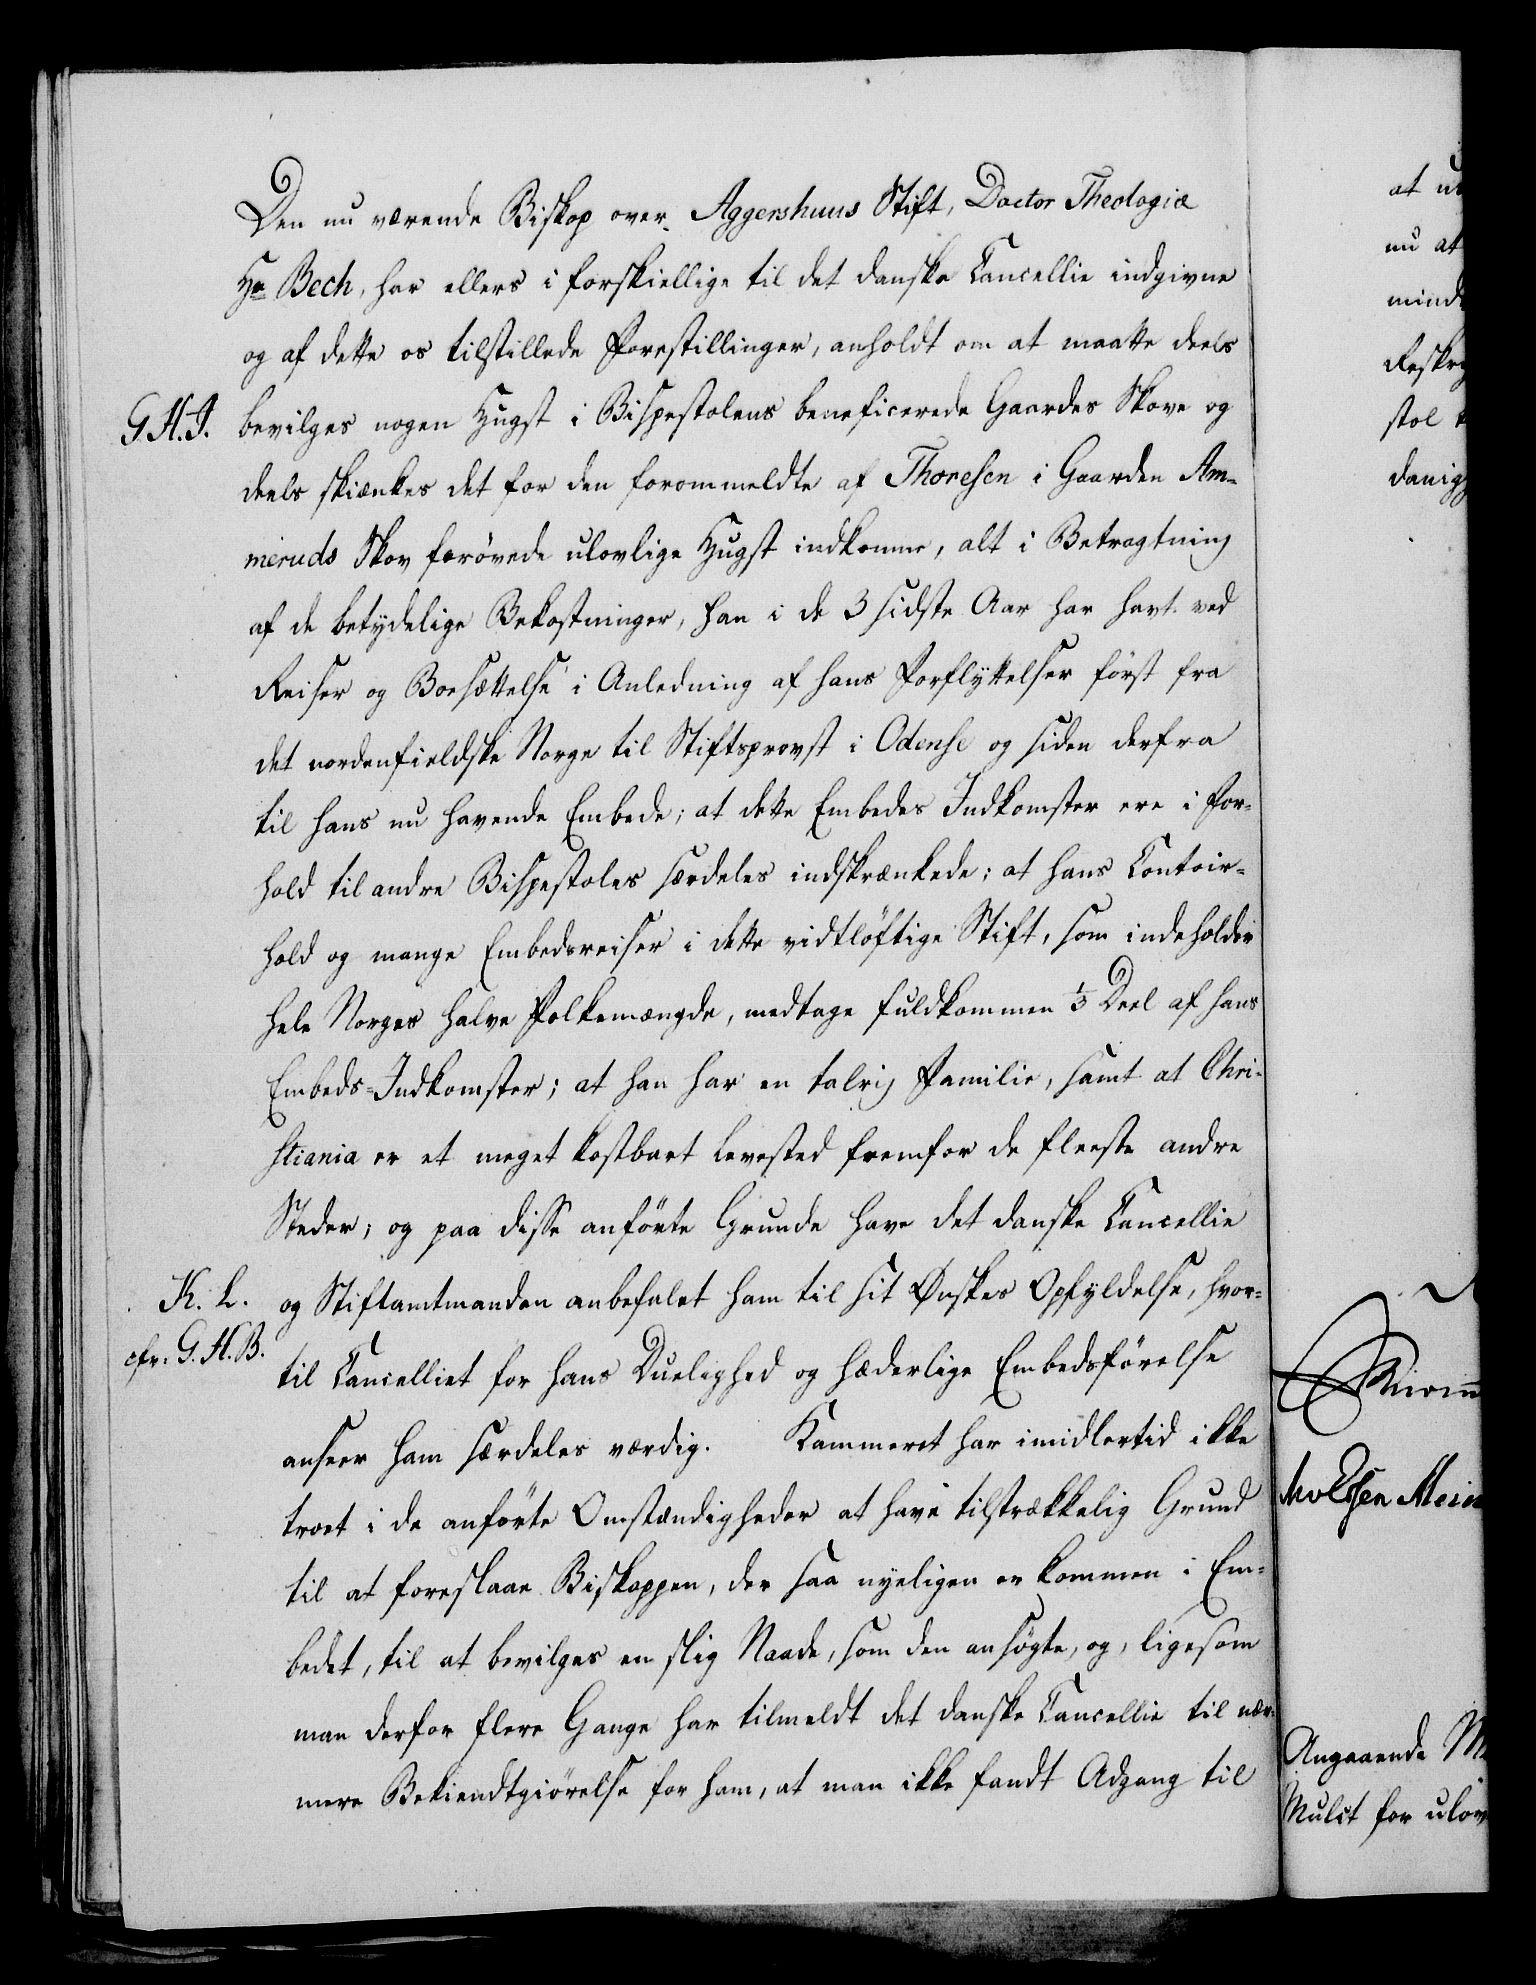 Den nu værende Biskop over Aggershuus Stift, Doctor Theologiæ
Hr Bech, har ellers i forskiellige til det danske Cancellie indgivne
og af dette os tilstillede Forestillinger, anholdt om at maatte deels
G.H.I. bevilges nogen Hugst i Bispestolens beneficerede Gaardes Skove og
deels skiænkes det for den forommeldte af Thoresen i Gaarden Am-
meruds Skov forövede ulovlige Hugst indkomne, alt i Betragtning
af de betydelige Bekostninger, han i de 3 sidste Aar har havt ved
Reiser og Boesættelse i Anledning af hans Forflyttelser först fra
det nordenfieldske Norge til Stiftsprovst i Odense og siden derfra
til hans nu havende Embede; at dette Embedes Indkomster ere i For-
hold til andre Bispestoles særdeles indskrænkede; at hans Contoir-
hold og mange Embedsreiser i dette vidtlöftige Stift, som indeholder
hele Norges halve Folkemængde, medtage fuldkommen 1/3 Deel af hans
Embeds-Indkomster; at han har en talrig Familie, samt at Chri-
stiania er et meget kostbart Levested fremfor de fleeste andre
Steder; og paa disse anförte Grunde have det danske Cancellie
K. L. og Stiftamtmanden anbefalet ham til sit Ønskes Opfyldelse, hvor-
cfr. G.H.B. til Cancelliet for hans Duelighed og hæderlige Embedsförelse
anseer ham særdeles værdig. Kammeret har imidlertid ikke
troet i de anförte Omstændigheder at have tilstrækkelig Grund
til at foreslaae Biskoppen, der saa nyeligen er kommen i Em-
bedet, til at bevilges en slig Naade, som den ansögte, og, ligesom
man derfor flere Gange har tilmeldt det danske Cancellie til nær-
mere Bekiendtgiörelse for ham, at man ikke fandt Adgang til
at
nu at
stol
Angaaende
Mulct for